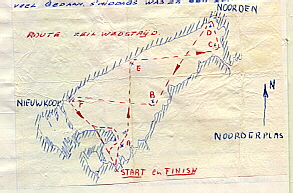 VEEL GEDAAN. S'MIDDAGS WAS ER EEN
NOORDEN
ROUTE ZEIL WEDSTRIJD
D
C
E
N
NIEUWKOOP
F
B
NOORDERPLAS
A
START EN FINISH